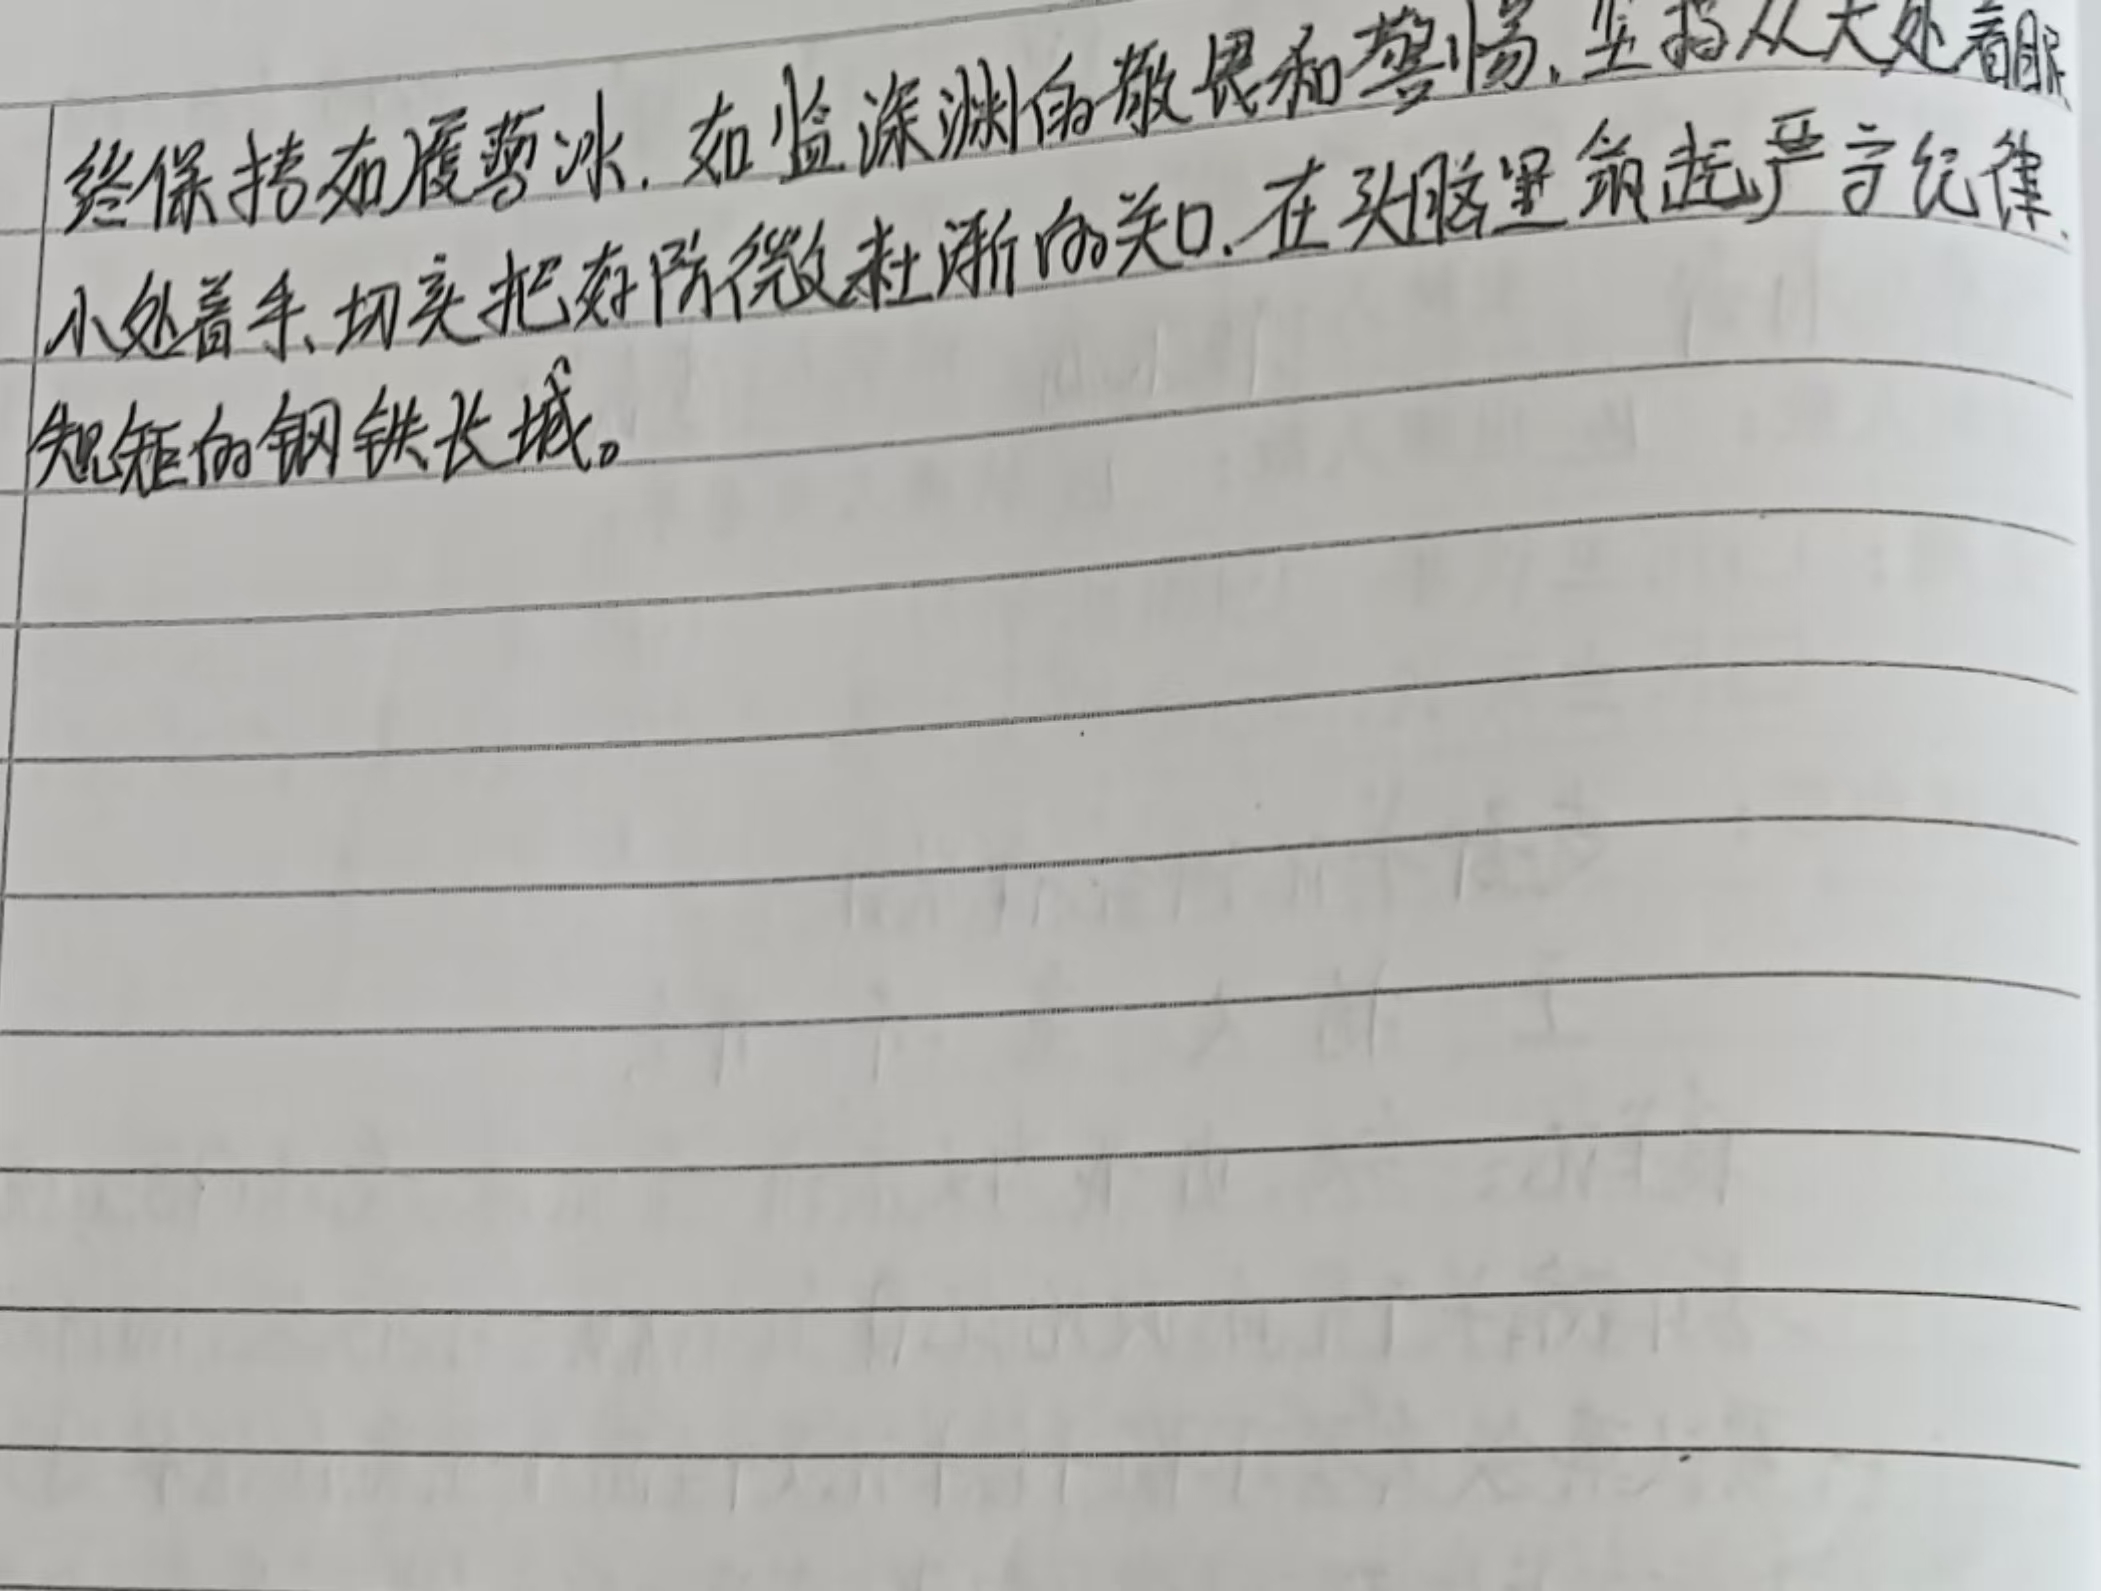 终保持如履薄冰、如监深渊的敬畏和警惕、坚持从大处着眼
小处着手、切实把好防微杜渐的关口、在头脑里筑起严守纪律、
规矩的钢铁长城。